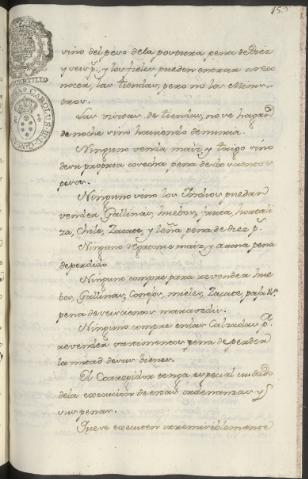 sino del peso de la postura pena de diez
y seis p.s y los fieles pueden entrar a reco
nocer, las tiendas, pero no los Minis-
tros.
Las visitas de tiendas, no se hagan
de noche sino haviendo denuncia.
Ninguno venda maiz, y trigo sino
de su propria cosecha pena de
pesos.
Ninguno sino los Indios puedan
vender, Gallinas, huebos, fruta, hortali
za, Chile, Zacate, y Leña pena de diez p.s
Ninguno maiz, y arina pena
de perdido
Ninguno compre para revender hue
bos, Gallinas, mieles, Zacate, paja &.a
pena de seiscientos maravedis.
Ninguno compre en las Calzadas p.a
revender vastimentos pena de perder
la mitad de sus bienes.
El Corregidor tenga especial cuidado
de la execucion de estas ordenanzas y
sus penas.
Que se executen irremisiblemente